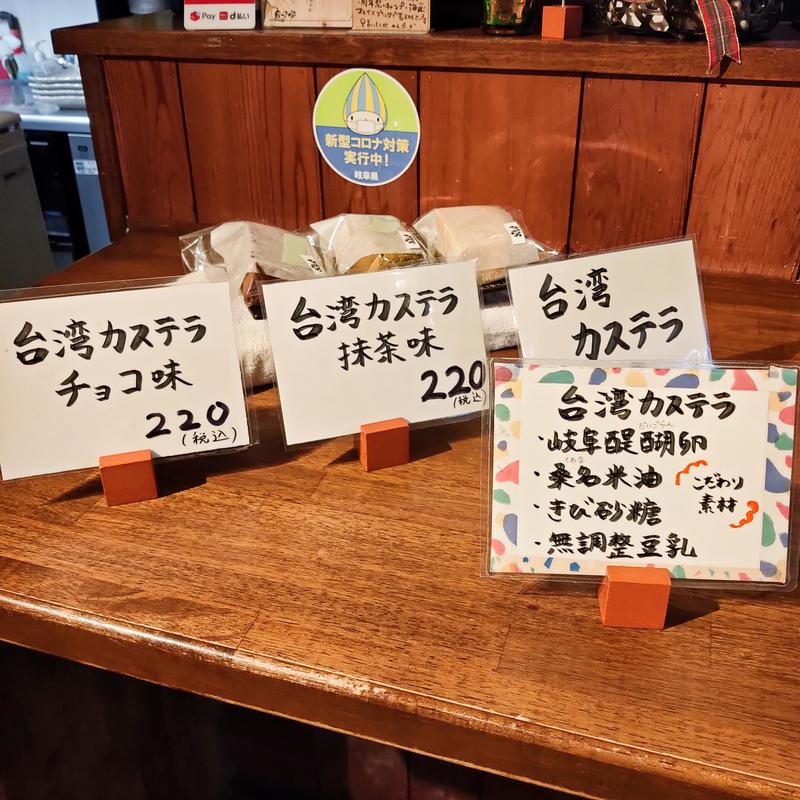 Pay d払い
新型コロナ対策
実行中!
岐阜県
台湾カステラ
チョコ味
220
(税込)
台湾カステラ
抹茶味
220
(税込)
台湾
カステラ
台湾カステラ
だいごらん
・岐阜醍醐卵
くわな
・桑名米油
・きび砂糖
・無調整豆乳
こだわり
素材